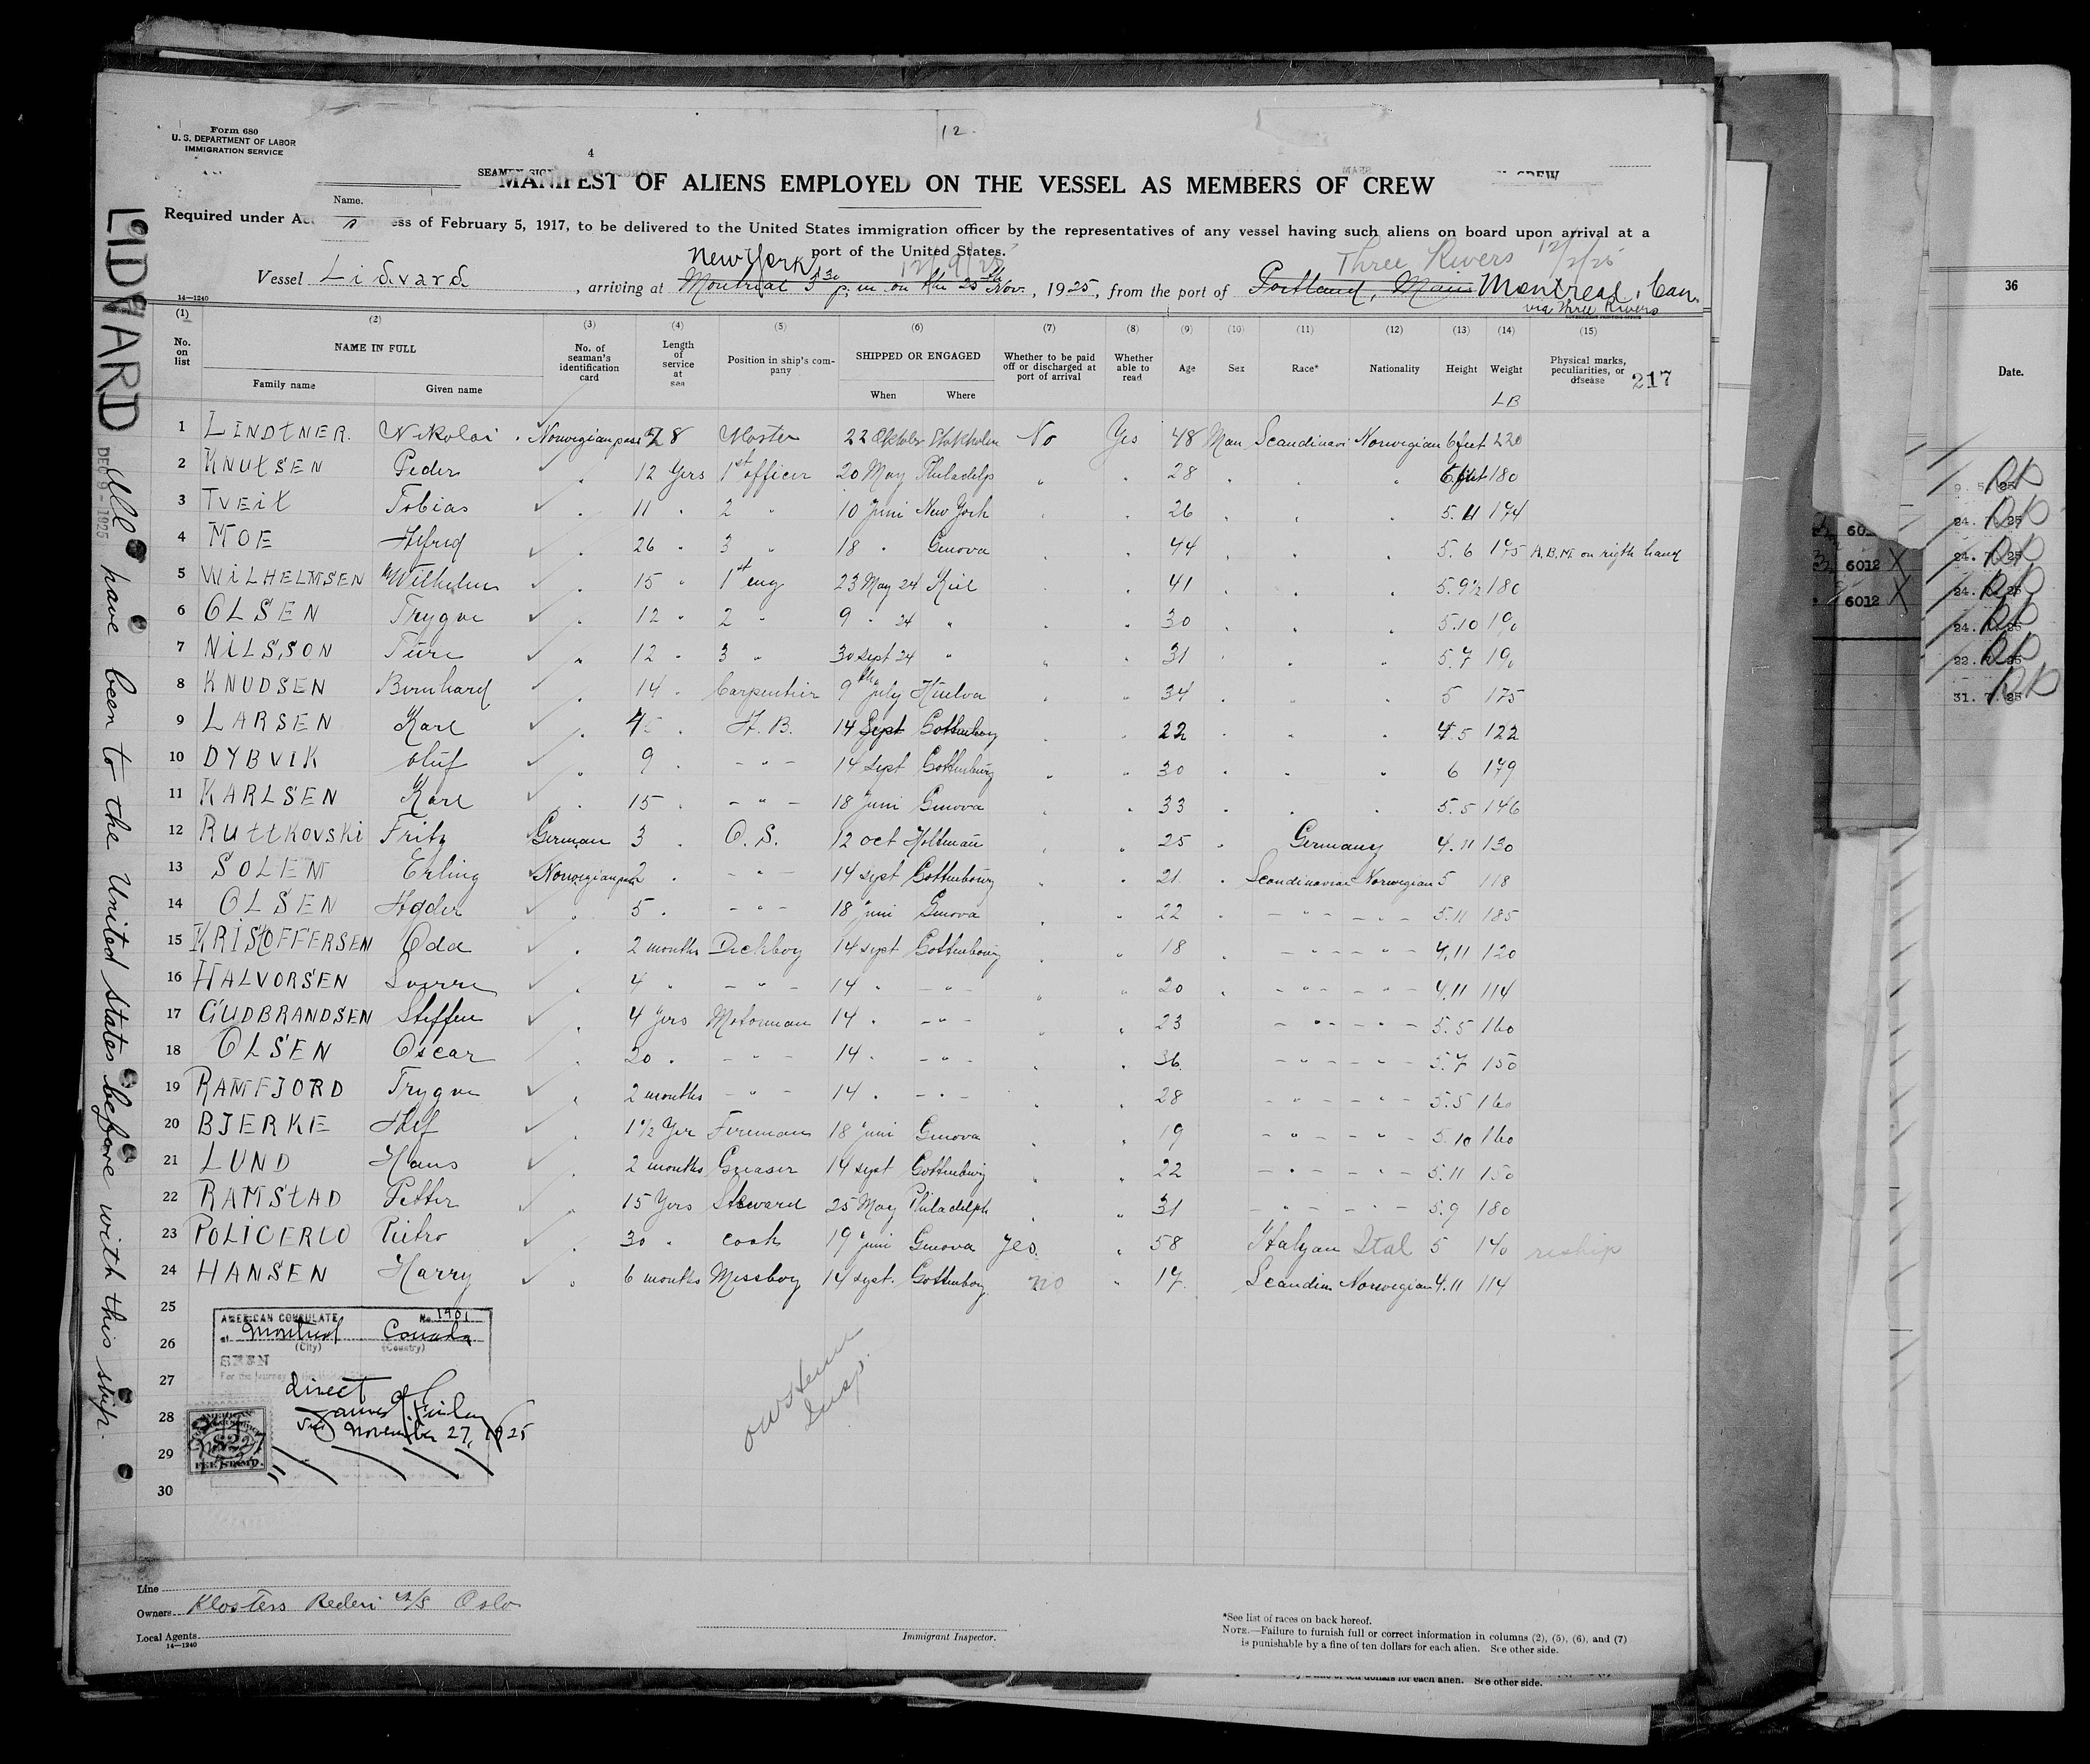 12.
Form 680
U. S. DEPARTMENT OF LABOR
IMMIGRATION SERVICE
4
MANIFEST OF ALIENS EMPLOYED ON THE VESSEL AS MEMBERS OF CREW
Name.
Required under Ac ess of February 5, 1917, to be delivered to the United States immigration officer by the representatives of any vessel having such aliens on board upon arrival at a
port of the United States.
New York 12/9/25 Three Rivers 12/2/25
Vessel Lidvard, arriving at Montreal 5 30 p.m. on the 25th Nov., 1925, from the port of Portland, Main Montreal, Can.
via Three Rivers
14—1240
(1) (2) (3) (4) (5) (6) (7) (8) (9) (10) (11) (12) (13) (14) (15)
No. on list NAME IN FULL No. of seaman's identification card Length of service at sea Position in ship's company SHIPPED OR ENGAGED Whether to be paid off or discharged at port of arrival Whether able to read Age Sex Race* Nationality Height Weight Physical marks, peculiarities, or disease 217
Family name Given name When Where LB
1 LINDTNER. Nikolai Norwegian pass 28 Master 22 Oktober Stokholm No Yes 48 Man Scandinavi Norwegian 6 feet 220
2 KNUTSEN Peder " 12 Yers 1st officer 20 May Philadelp " " 28 " " " 6 feet 180
3 TVEIT Tobias " 11 " 2 " 10 Juni New York " " 26 " " " 5.11 174
4 MOE " 26 " 3 " 18 " Genova " " 44 " " " 5.6 175 A.B.M. on rigth hand
5 WILHELMSEN Wilhelm " 15 " 1st eng 23 May 24 Kiel " " 41 " " " 5.9½ 180
6 OLSEN Trygve " 12 " 2 " 9 " 24 " " " 30 " " " 5.10 190
7 NILSSON Ture " 12 " 3 " 30 sept 24 " " " 31 " " " 5.7 190
8 KNUDSEN Bernhard " 14 " Carpentier 9th July Huelva " " 34 " " " 5 175
9 LARSEN Karl " " A.B. 14 Sept Gottenborg " " 22 " " " 4.5 122
10 DYBVIK Oluf " 9 " - " - 14 sept Gottenburg " " 30 " " " 6 179
11 KARLSEN Karl " 15 " - " - 18 Juni Genova " " 33 " " " 5.5 146
12 RUTTKOVSKI Fritz German 3 " O.S. 12 oct Holtenau " " 25 " Germany 4.11 130
13 SOLEM Erling Norwegian pass 2 " - " - 14 sept Gottenbourg " " 21 " Scandinavian Norwegian 5 118
14 OLSEN " 5 " - " - 18 Juni Genova " " 22 " - " - - " - 5.11 185
15 KRISTOFFERSEN Odd " 2 months Deckboy 14 sept Gottenbourg " " 18 " - " - - " - 4.11 120
16 HALVORSEN Sverre " 4 " - " - 14 " - " - " " 20 " - " - - " - 4.11 114
17 GUDBRANDSEN Steffen " 4 Yers Motorman 14 " - " - " " 23 - " - - " - 5.5 160
18 OLSEN Oscar " 20 " - " - 14 " - " - " " 36 - " - - " - 5.7 150
19 RAMFJORD Trygve " 2 months - " - 14 " - " - " " 28 - " - - " - 5.5 160
20 BJERKE " 1½ Yer Fireman 18 Juni Genova " " 19 - " - - " - 5.10 160
21 LUND Hans " 2 months Greaser 14 sept Gottenburg " " 22 - " - - " - 5.11 150
22 RAMSTAD Petter " 15 Yers Steward 25 May Philadelph " " 31 - " - - " - 5.9 180
23 POLICERLO Pietro " 30 " cook 19 Juni Genova Yes. " 58 Italyan Ital 5 140 reship
24 HANSEN Harry " 6 months Messboy 14 sept. Gottenborg no " 17 Scandin Norwegian 4.11 114
25
26
27
28
29
30
AMERICAN CONSULATE No. 1901
at Montreal Canada
(City) (Country)
SEEN
For the journey
direct
November 27, 1925
FEE STAMP.
Insp.
LIDVARD
DEC 9 - 1925
All have been to the United States before with this ship.
Line
Owners Klosters Rederi A/S Oslo
Local Agents
14—1240
Immigrant Inspector.
*See list of races on back hereof.
NOTE.—Failure to furnish full or correct information in columns (2), (5), (6), and (7)
is punishable by a fine of ten dollars for each alien. See other side.
for each alien. See other side.
36
Date.
6012 X
6012 X
24. 7. 25
24. 7. 25
31. 7. 25